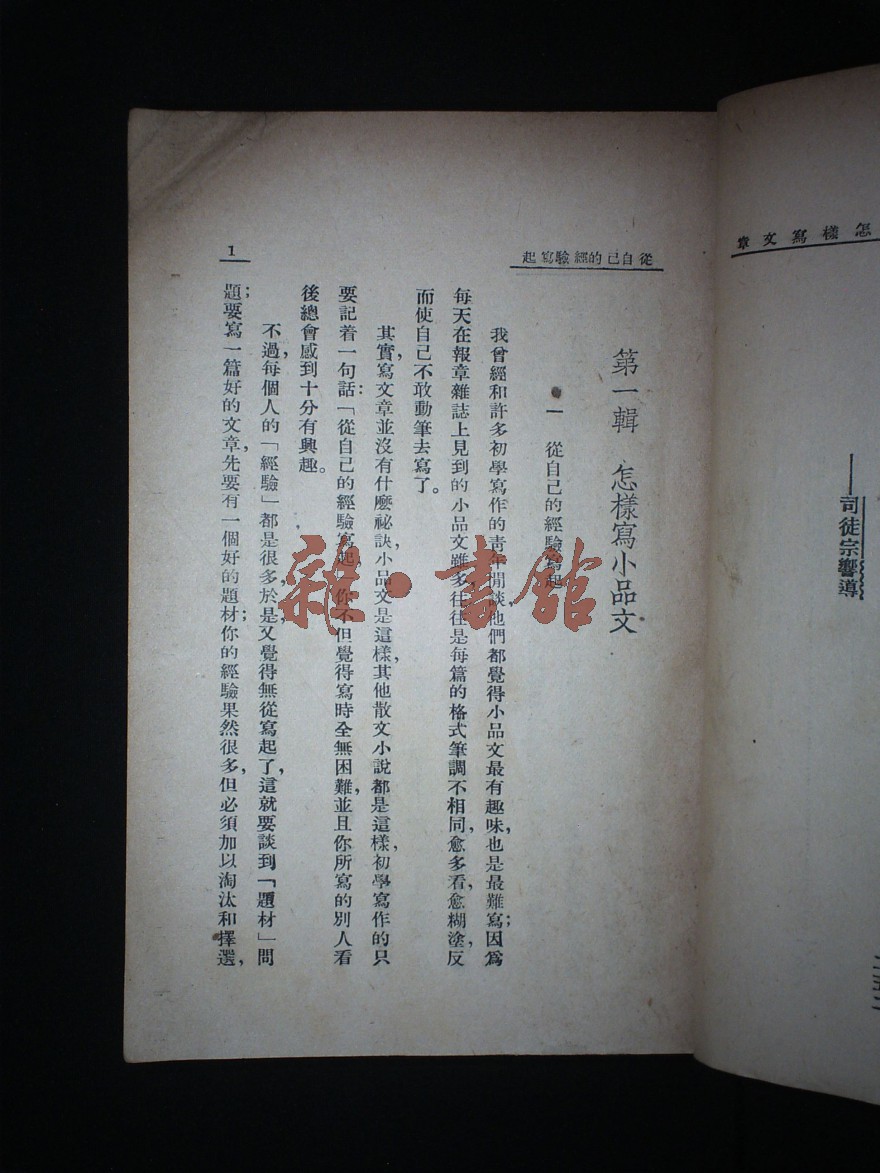 怎樣寫文章
——司徒宗響導
一五二
從自己的經驗寫起
第一輯 怎樣寫小品文
一 從自己的經驗寫起
我曾經和許多初學寫作的青年閒談,他們都覺得小品文最有趣味,也是最難寫;因爲
每天在報章雜誌上見到的小品文雖多,往往是每篇的格式筆調不相同,愈多看,愈糊塗,反
而使自己不敢動筆去寫了。
其實,寫文章並沒有什麼祕訣,小品文是這樣,其他散文小說都是這樣,初學寫作的只
要記着一句話:「從自己的經驗寫起,你不但覺得寫時全無困難,並且你所寫的別人看
後總會感到十分有興趣。
不過,每個人的「經驗」都是很多,於是又覺得無從寫起了,這就要談到「題材」問
題;要寫一篇好的文章,先要有一個好的題材;你的經驗果然很多,但必須加以淘汰和擇選,
1
雜·書館